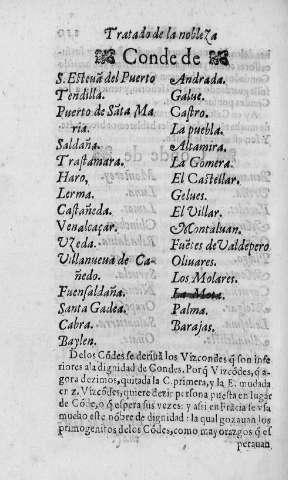 Tratado de la nobleza
Conde de
S. Esteuã del Puerto
Tendilla.
Puerto de Sãta Ma
ria.
Saldaña.
Trastamara.
Haro,
Lerma.
Castañeda.
Venalcaçar.
Vzeda.
Villanueua de Ca-
ñedo.
Fuensaldaña.
Santa Gadea.
Cabra.
Baylen.
Andrada.
Galue.
Castro.
La puebla.
Altamira.
La Gomera.
El Castellar.
Gelues.
El Villar.
Montaluan.
Fuẽtes de Valdepero
Oliuares.
Los Molares.
La Mota.
Palma.
Barajas.
Delos Cõdes se deriuã los Vizcondes q̃ son infe
riores a la dignidad de Condes. Porq̃ Vizcõdes, q̃ a-
gora dezimos, quitada la C. primera, y la E. mudada
en z. Vizcõdes, quiere dezir persona puesta en lugar
de Cõde, o q̃ espera sus vezes: y assi en Frãcia se vsa
mucho este nõbre de dignidad: la qual gozauan los
primogenitos de los Cõdes, como mayorazgos q̃ es
perauan